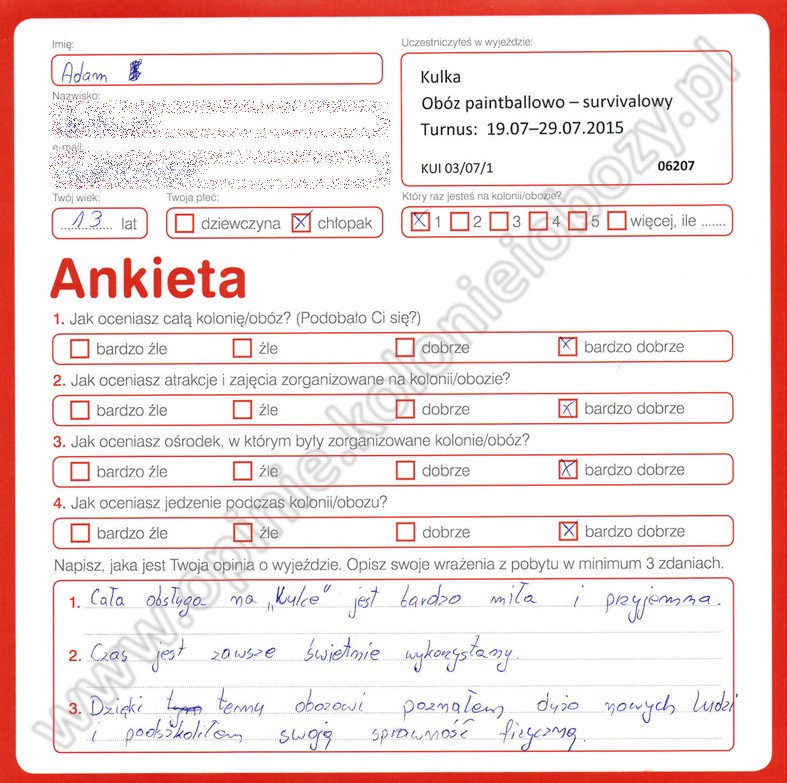 Imię:
Uczestniczyłeś w wyjeździe:
Adam
Kulka
Obóz paintballowo – survivalowy
Turnus: 19.07–29.07.2015
KUI 03/07/1 06207
Nazwisko:
e-mail:
Twój wiek:
Twoja płeć:
Który raz jesteś na kolonii/obozie?
13 lat
dziewczyna chłopak
1 2 3 4 5 więcej, ile .......
Ankieta
1. Jak oceniasz całą kolonię/obóz? (Podobało Ci się?)
bardzo źle źle dobrze bardzo dobrze
2. Jak oceniasz atrakcje i zajęcia zorganizowane na kolonii/obozie?
bardzo źle źle dobrze bardzo dobrze
3. Jak oceniasz ośrodek, w którym były zorganizowane kolonie/obóz?
bardzo źle źle dobrze bardzo dobrze
4. Jak oceniasz jedzenie podczas kolonii/obozu?
bardzo źle źle dobrze bardzo dobrze
Napisz, jaka jest Twoja opinia o wyjeździe. Opisz swoje wrażenia z pobytu w minimum 3 zdaniach.
1. Cała obsługa na „Kulce" jest bardzo miła i przyjemna.
2. Czas jest zawsze świetnie wykorzystany.
3. Dzięki temu obozowi poznałem dużo nowych ludzi
i podszkoliłem swoją sprawność fizyczną.
www.opinie.kolonieiobozy.pl